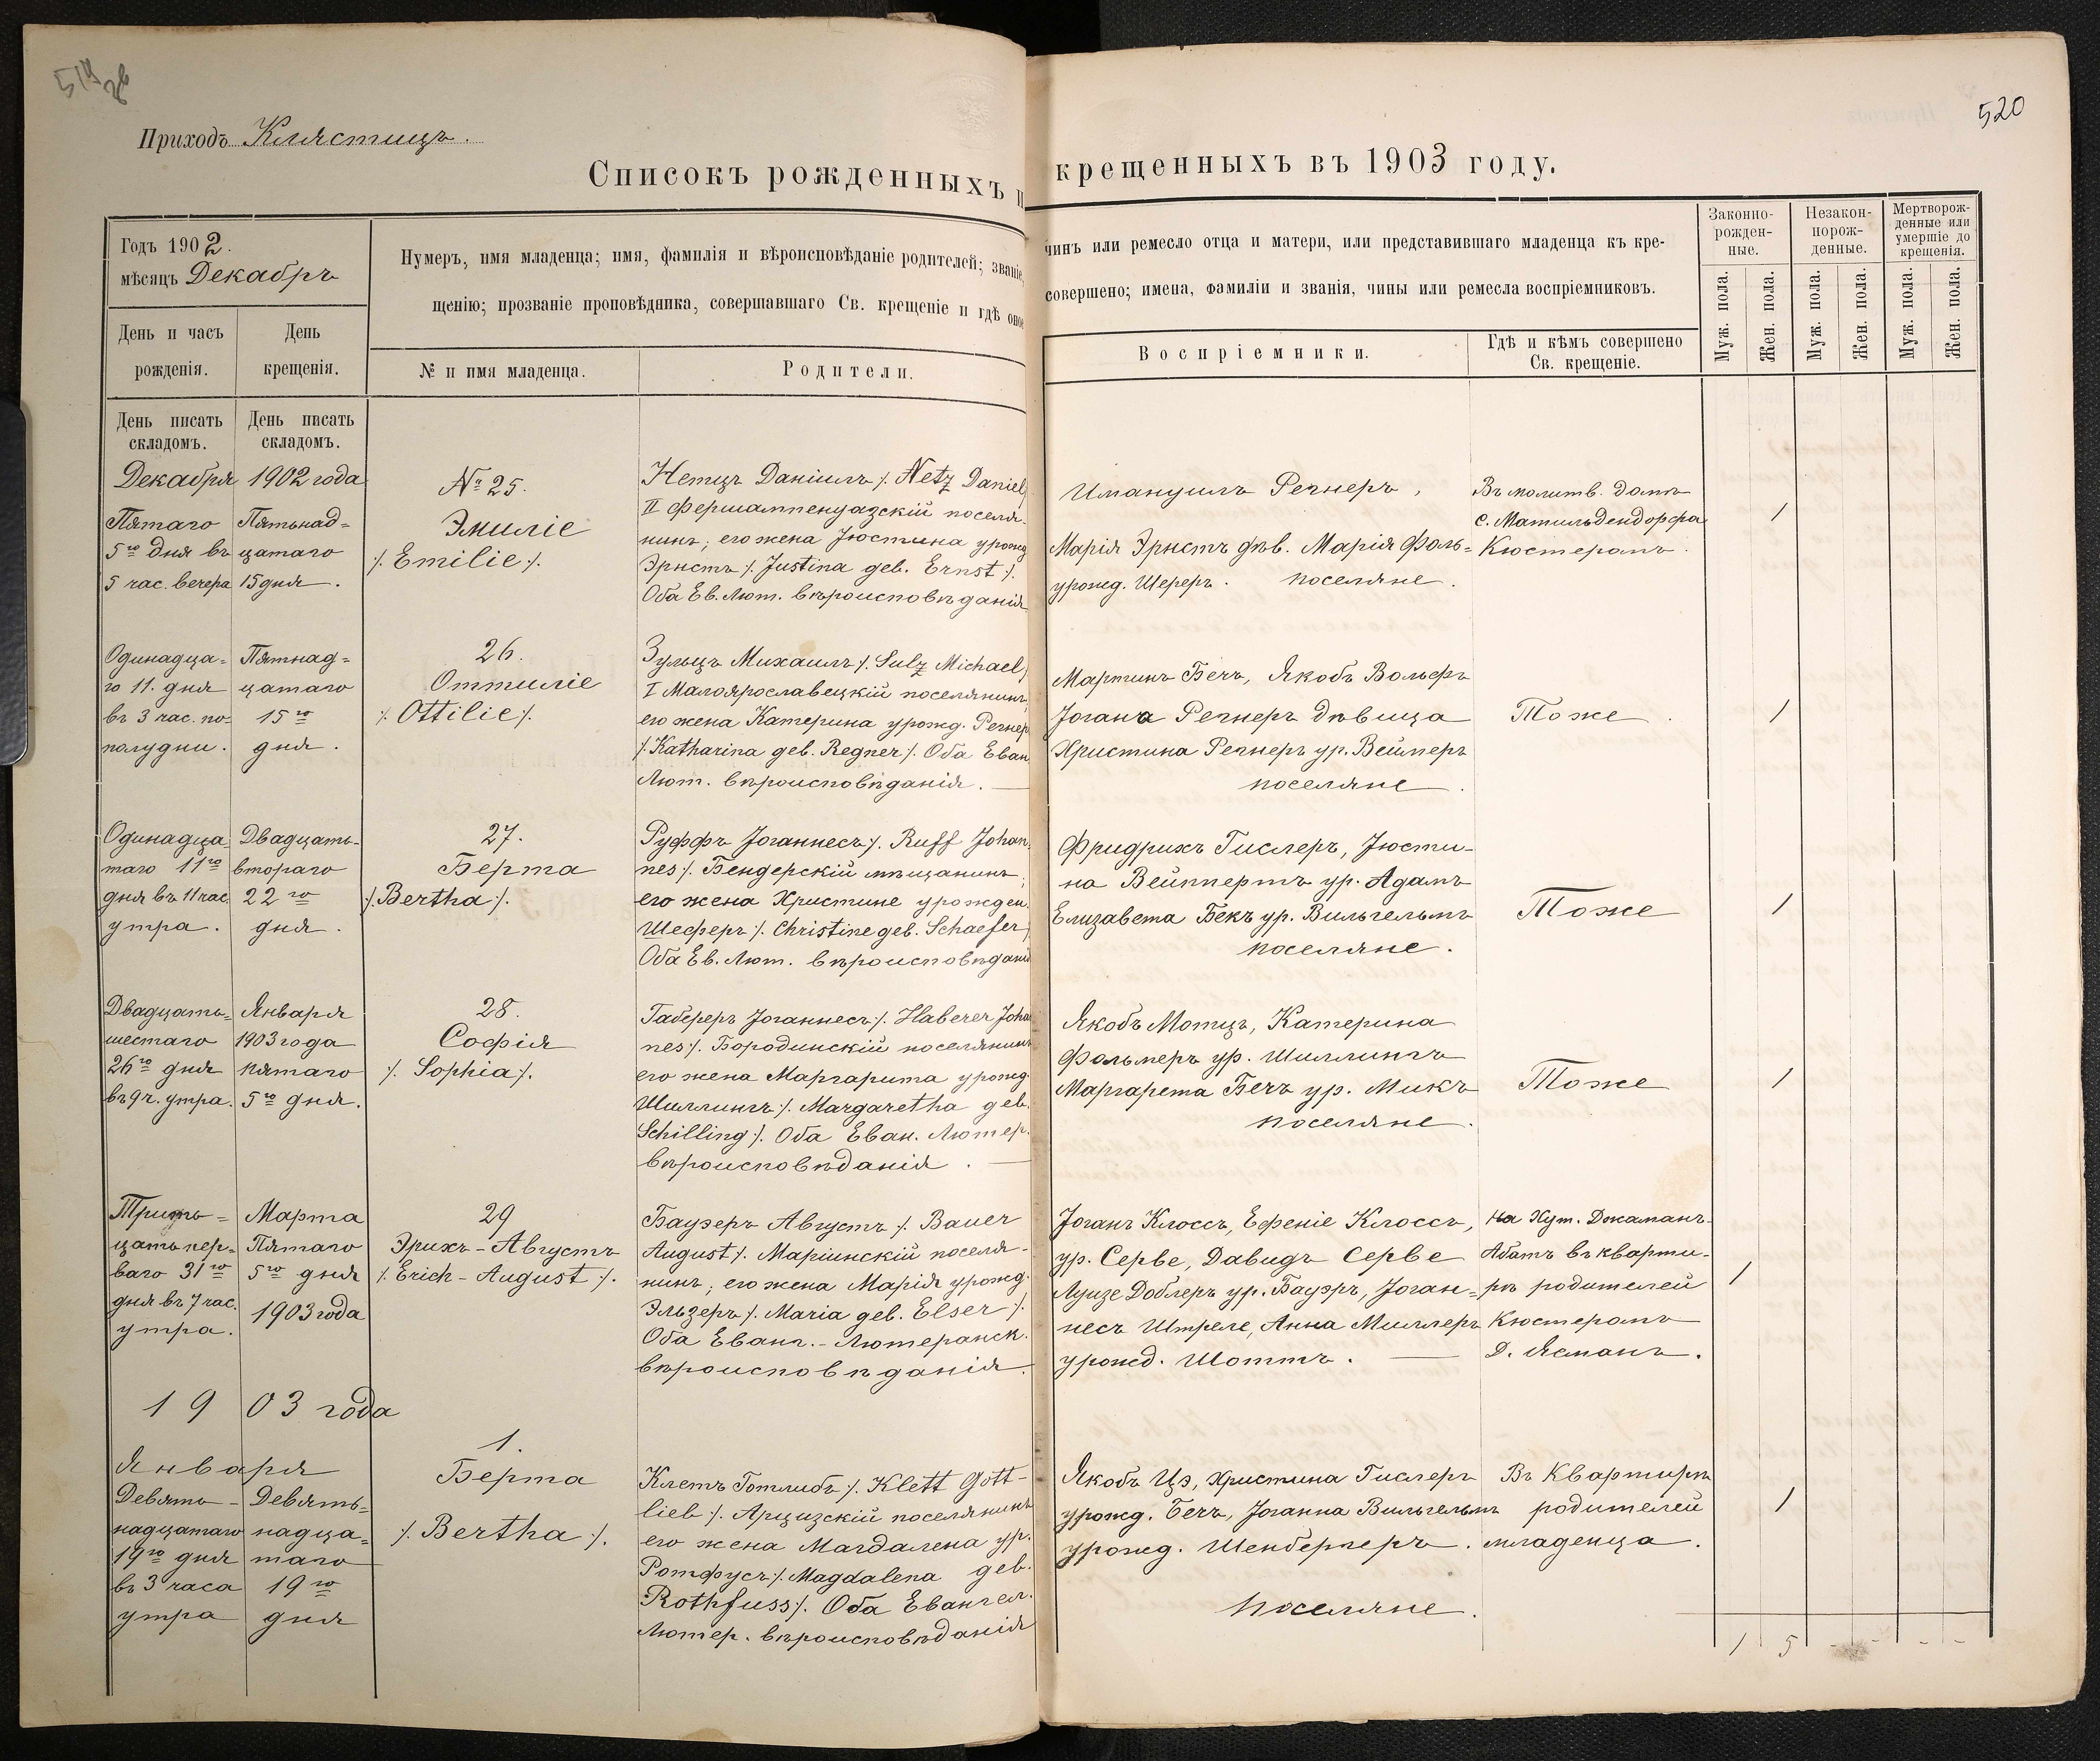 520
Приходъ Клястицъ.
Списокъ рожденныхъ и крещенныхъ въ 1903 году.
Годъ 1902.
мѣсяцъ Декабрь
Нумеръ, имя младенца; имя, фамилія и вѣроисповѣданіе родителей; званіе, чинъ или ремесло отца и матери, или представившаго младенца къ кре-
щенію; прозваніе проповѣдника, совершавшаго Св. крещеніе и гдѣ оное совершено; имена, фамиліи и званія, чины или ремесла воспріемниковъ.
День и часъ
рожденія.
День
крещенія.
№ и имя младенца.
Родители.
Воспріемники.
Гдѣ и кѣмъ совершено
Св. крещеніе.
Законно-
рожден-
ные.
Незакон-
норож-
денные.
Мертворож-
денные или
умершіе до
крещенія.
Муж. пола.
Жен. пола.
Муж. пола.
Жен. пола.
Муж. пола.
Жен. пола.
День писать
складомъ.
День писать
складомъ.
Декабря 1902 года
Пятаго
5го дня въ
5 час. вечера
Пятьнад=
цатаго
15 дня.
№ 25.
Эмиліе
/. Emilie /.
Нетцъ Даніилъ /. Netz Daniel
II Фершампенуазскій поселя-
нинъ; его жена Юстина урожд
Эрнстъ /. Justina geb. Ernst /.
Оба Ев. Лют. вѣроисповѣданія
Имануилъ Регнеръ,
Марія Эрнстъ дѣв. Марія Фоль=
урожд. Шереръ. поселяне.
Въ молитв. домѣ
с. Матильдендорфа
Кюстеромъ.
1
Одинадца=
го 11. дня
въ 3 час. по-
полудни.
Пятнад=
цатаго
15го
дня.
26.
Оттиліе
/. Ottilie /.
Зульцъ Михаилъ /. Sulz Michael
I Малоярославецкій поселянинъ
его жена Катерина урожд. Регнер
/. Katharina geb. Regner /. Оба Еван
Лют. вѣроисповѣданія. —
Мартинъ Бечъ, Якобъ Вольфъ
Іогана Регнеръ дѣвица
Христина Регнеръ ур. Веймеръ
поселяне.
Тоже.
1
Одинадца
таго 11го
дня въ 11 час.
утра.
Двадцать-
втораго
22го
дня.
27.
Берта
/. Bertha /.
Руффъ Іоганнесъ /. Ruff Johan
nes /. Бендерскій мѣщанинъ;
его жена Христине урожден.
Шеферъ /. Christine geb. Schaefer
Оба Ев. Лют. вѣроисповѣдані
Фридрихъ Гислеръ, Юсти-
на Вейппертъ ур. Адамъ
Елизавета Бекъ ур. Вильгельмъ
поселяне.
Тоже
1
Двадцать=
шестаго
26го дня
въ 9 ч. утра.
Января
1903 года
пятаго
5го дня.
28.
Софія
/. Sophia /.
Габереръ Іоганнесъ /. Haberer Joha
nes /. Бородинскій поселянинъ
его жена Маргарита урожд
Шиллингъ /. Margaretha geb.
Schilling /. Оба Еван. Лютер.
вѣроисповѣданія. —
Якобъ Мотцъ, Катерина
Фольмеръ ур. Шиллингъ
Маргарета Бечъ ур. Микъ
поселяне.
Тоже
1
Тридъ=
цать пер=
ваго 31го
дня въ 7 час.
утра.
Марта
Пятаго
5го дня
1903 года
29
Эрихъ-Августъ
/. Erich-August /.
Бауэръ Августъ /. Bauer
August /. Маріинскій поселя-
нинъ; его жена Марія урожд.
Эльзеръ /. Maria geb. Elser /.
Оба Еванг.-Лютеранск.
вѣроисповѣданія.
Іоганъ Клоссъ, Ефеніе Клоссъ,
ур. Серве, Давидъ Серве
Луизе Доблеръ ур. Бауэръ, Іоган=
несъ Штреле, Анна Миллеръ
урожд. Шоттъ. —
на Хут. Джаманъ-
Абатъ въ кварти-
рѣ родителей
Кюстеромъ
Д. Ясманъ.
1
1903 года
Января
Девять-
надцатаго
19го дня
въ 3 часа
утра
Девять=
надца=
таго
19го
дня
1.
Берта
/. Bertha /.
Клетъ Готлибъ /. Klett Gott-
lieb /. Арцизскій поселянинъ
его жена Магдалена ур.
Ротфусъ /. Magdalena geb.
Rothfuss /. Оба Евангел.
Лютер. вѣроисповѣданія
Якобъ Цэ, Христина Гислеръ
урожд. Бечъ, Іоганна Вильгельмъ
урожд. Шенбергеръ.
поселяне.
Въ Квартирѣ
родителей
младенца.
1
1 5 - - - -